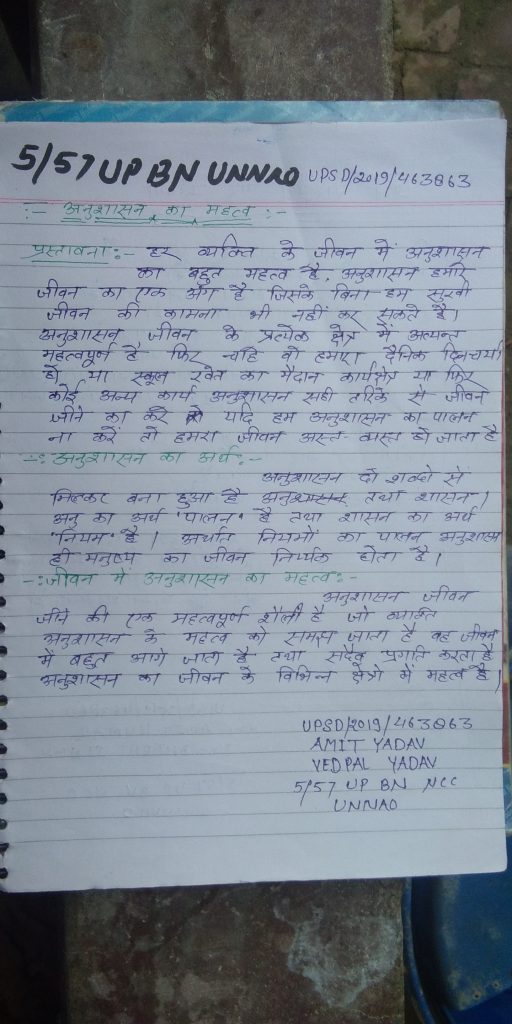 5/57 UP BN UNNAO UPSD/2019/463863
:- अनुशासन का महत्व :-
प्रस्तावना:- हर व्यक्ति के जीवन में अनुशासन
का बहुत महत्व है, अनुशासन हमारे
जीवन का एक अंग है जिसके बिना हम सुखी
जीवन की कामना भी नहीं कर सकते है।
अनुशासन जीवन के प्रत्येक क्षेत्र में अत्यन्त
महत्वपूर्ण है फिर चाहे वो हमारा दैनिक दिनचर्या
हो या स्कूल खेत का मैदान कार्यक्षेत्र या फिर
कोई अन्य कार्य अनुशासन सही तरिके से जीवन
जीने का करे यदि हम अनुशासन का पालन
ना करें तो हमरा जीवन अस्त-व्यस्त हो जाता है
-: अनुशासन का अर्थ:-
अनुशासन दो शब्दो से
मिलकर बना हुआ है अनुशासन तथा शासन।
अनु का अर्थ "पालन" है तथा शासन का अर्थ
"नियम" है। अर्थात नियमों का पालन अनुशासन
ही मनुष्य का जीवन निर्थक होता है।
-:जीवन में अनुशासन का महत्व:-
अनुशासन जीवन
जीने की एक महत्वपूर्ण शैली है जो व्यक्ति
अनुशासन के महत्व को समझ जाता है वह जीवन
में बहुत आगे जाता है तथा सदैव प्रगति करता है
अनुशासन का जीवन के विभिन्न क्षेत्रो में महत्व है।
UPSD/2019/463863
AMIT YADAV
VEDPAL YADAV
5/57 UP BN NCC
UNNAO